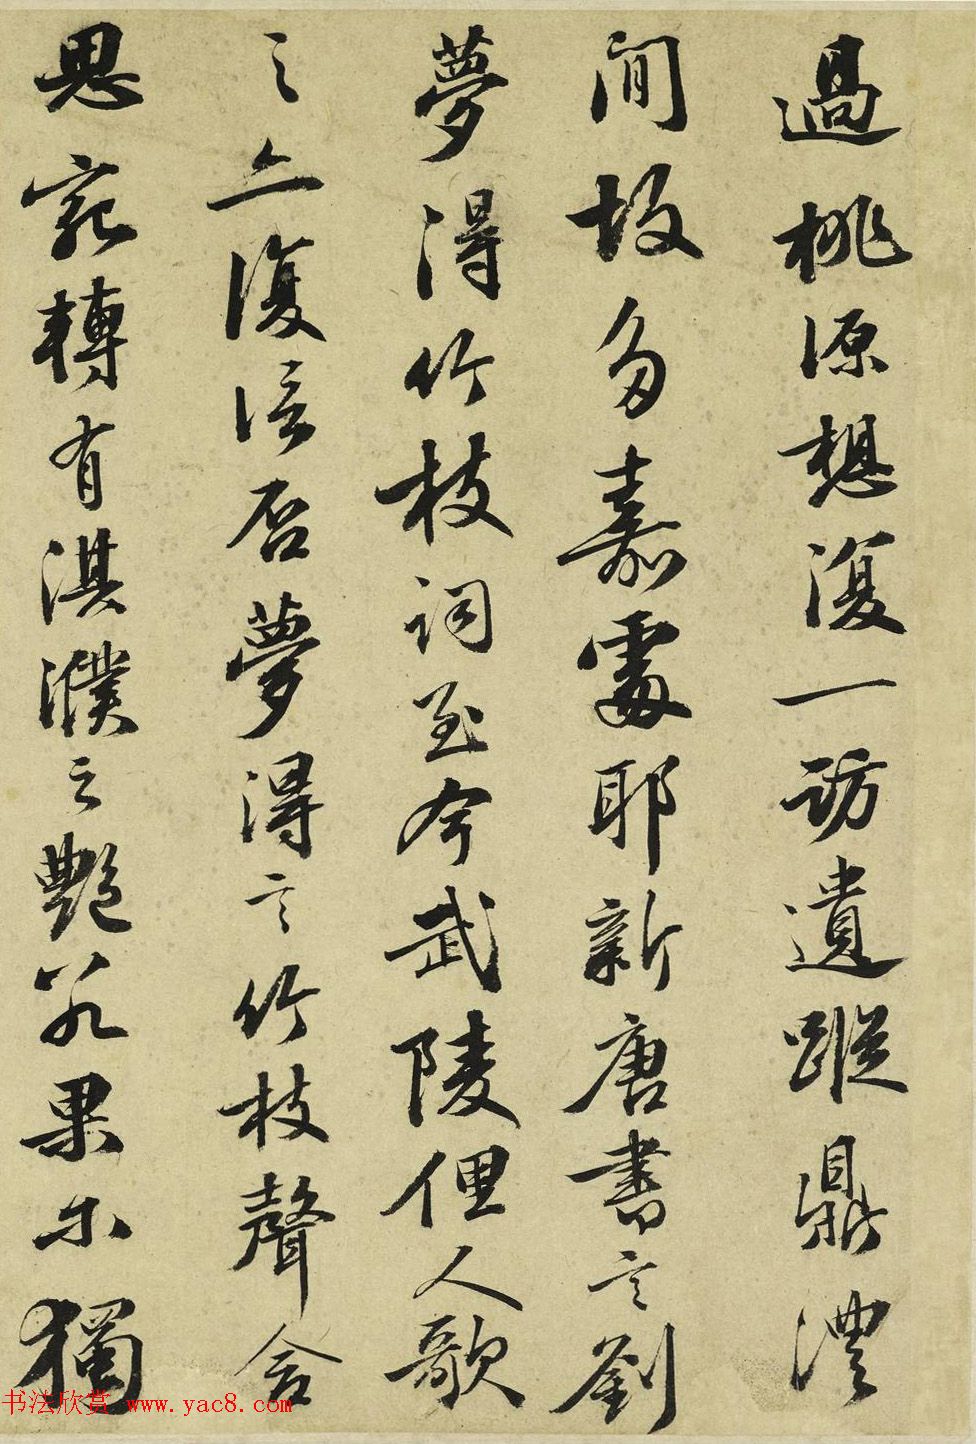 過桃源想復一訪遺蹤鼎澧
間故多嘉處耶新唐書言劉
夢得竹枝詞至今武陵俚人歌
之亦復信否夢得言竹枝聲含
思宛轉有淇濮之艷若果尔獨
书法欣赏 www.yac8.com